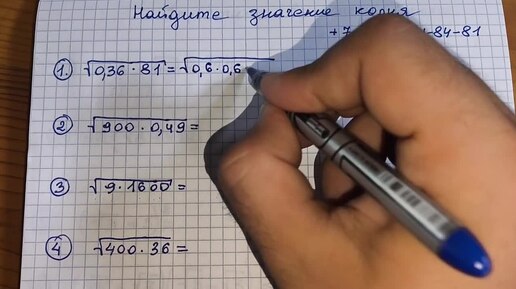 Найдите значение корня
+7 -84-81
1. √0,36 · 81 = √0,6 · 0,6 ·
2 √900 · 0,49 =
3 √9 · 1600 =
4 √400 · 36 =